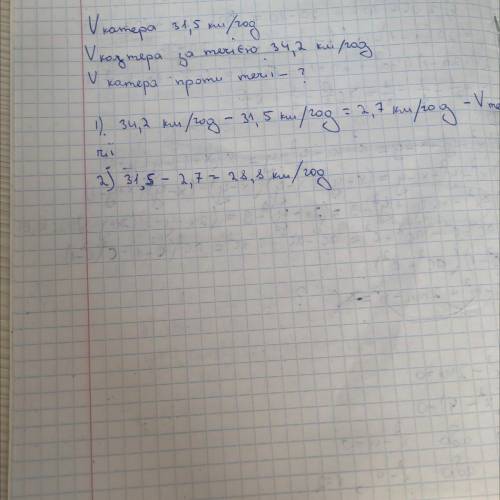 V катера 31,5 км/год
V катера за течією 34,2 км/год
V катера проти течії - ?
1). 34,2 км/год - 31,5 км/год = 2,7 км/год - V те
чії
2) 31,5 - 2,7 = 28,8 км/год